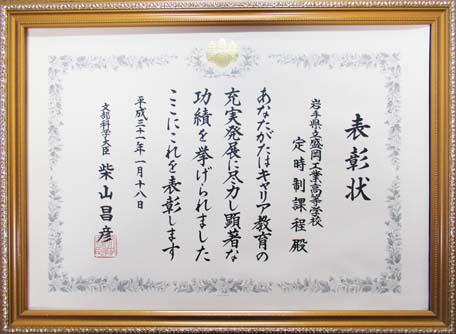 表彰状
岩手県立盛岡工業高等学校
定時制課程 殿
あなたがたはキャリア教育の
充実発展に尽力し顕著な
功績を挙げられました
ここにこれを表彰します
平成三十一年一月十八日
文部科学大臣 柴山昌彦